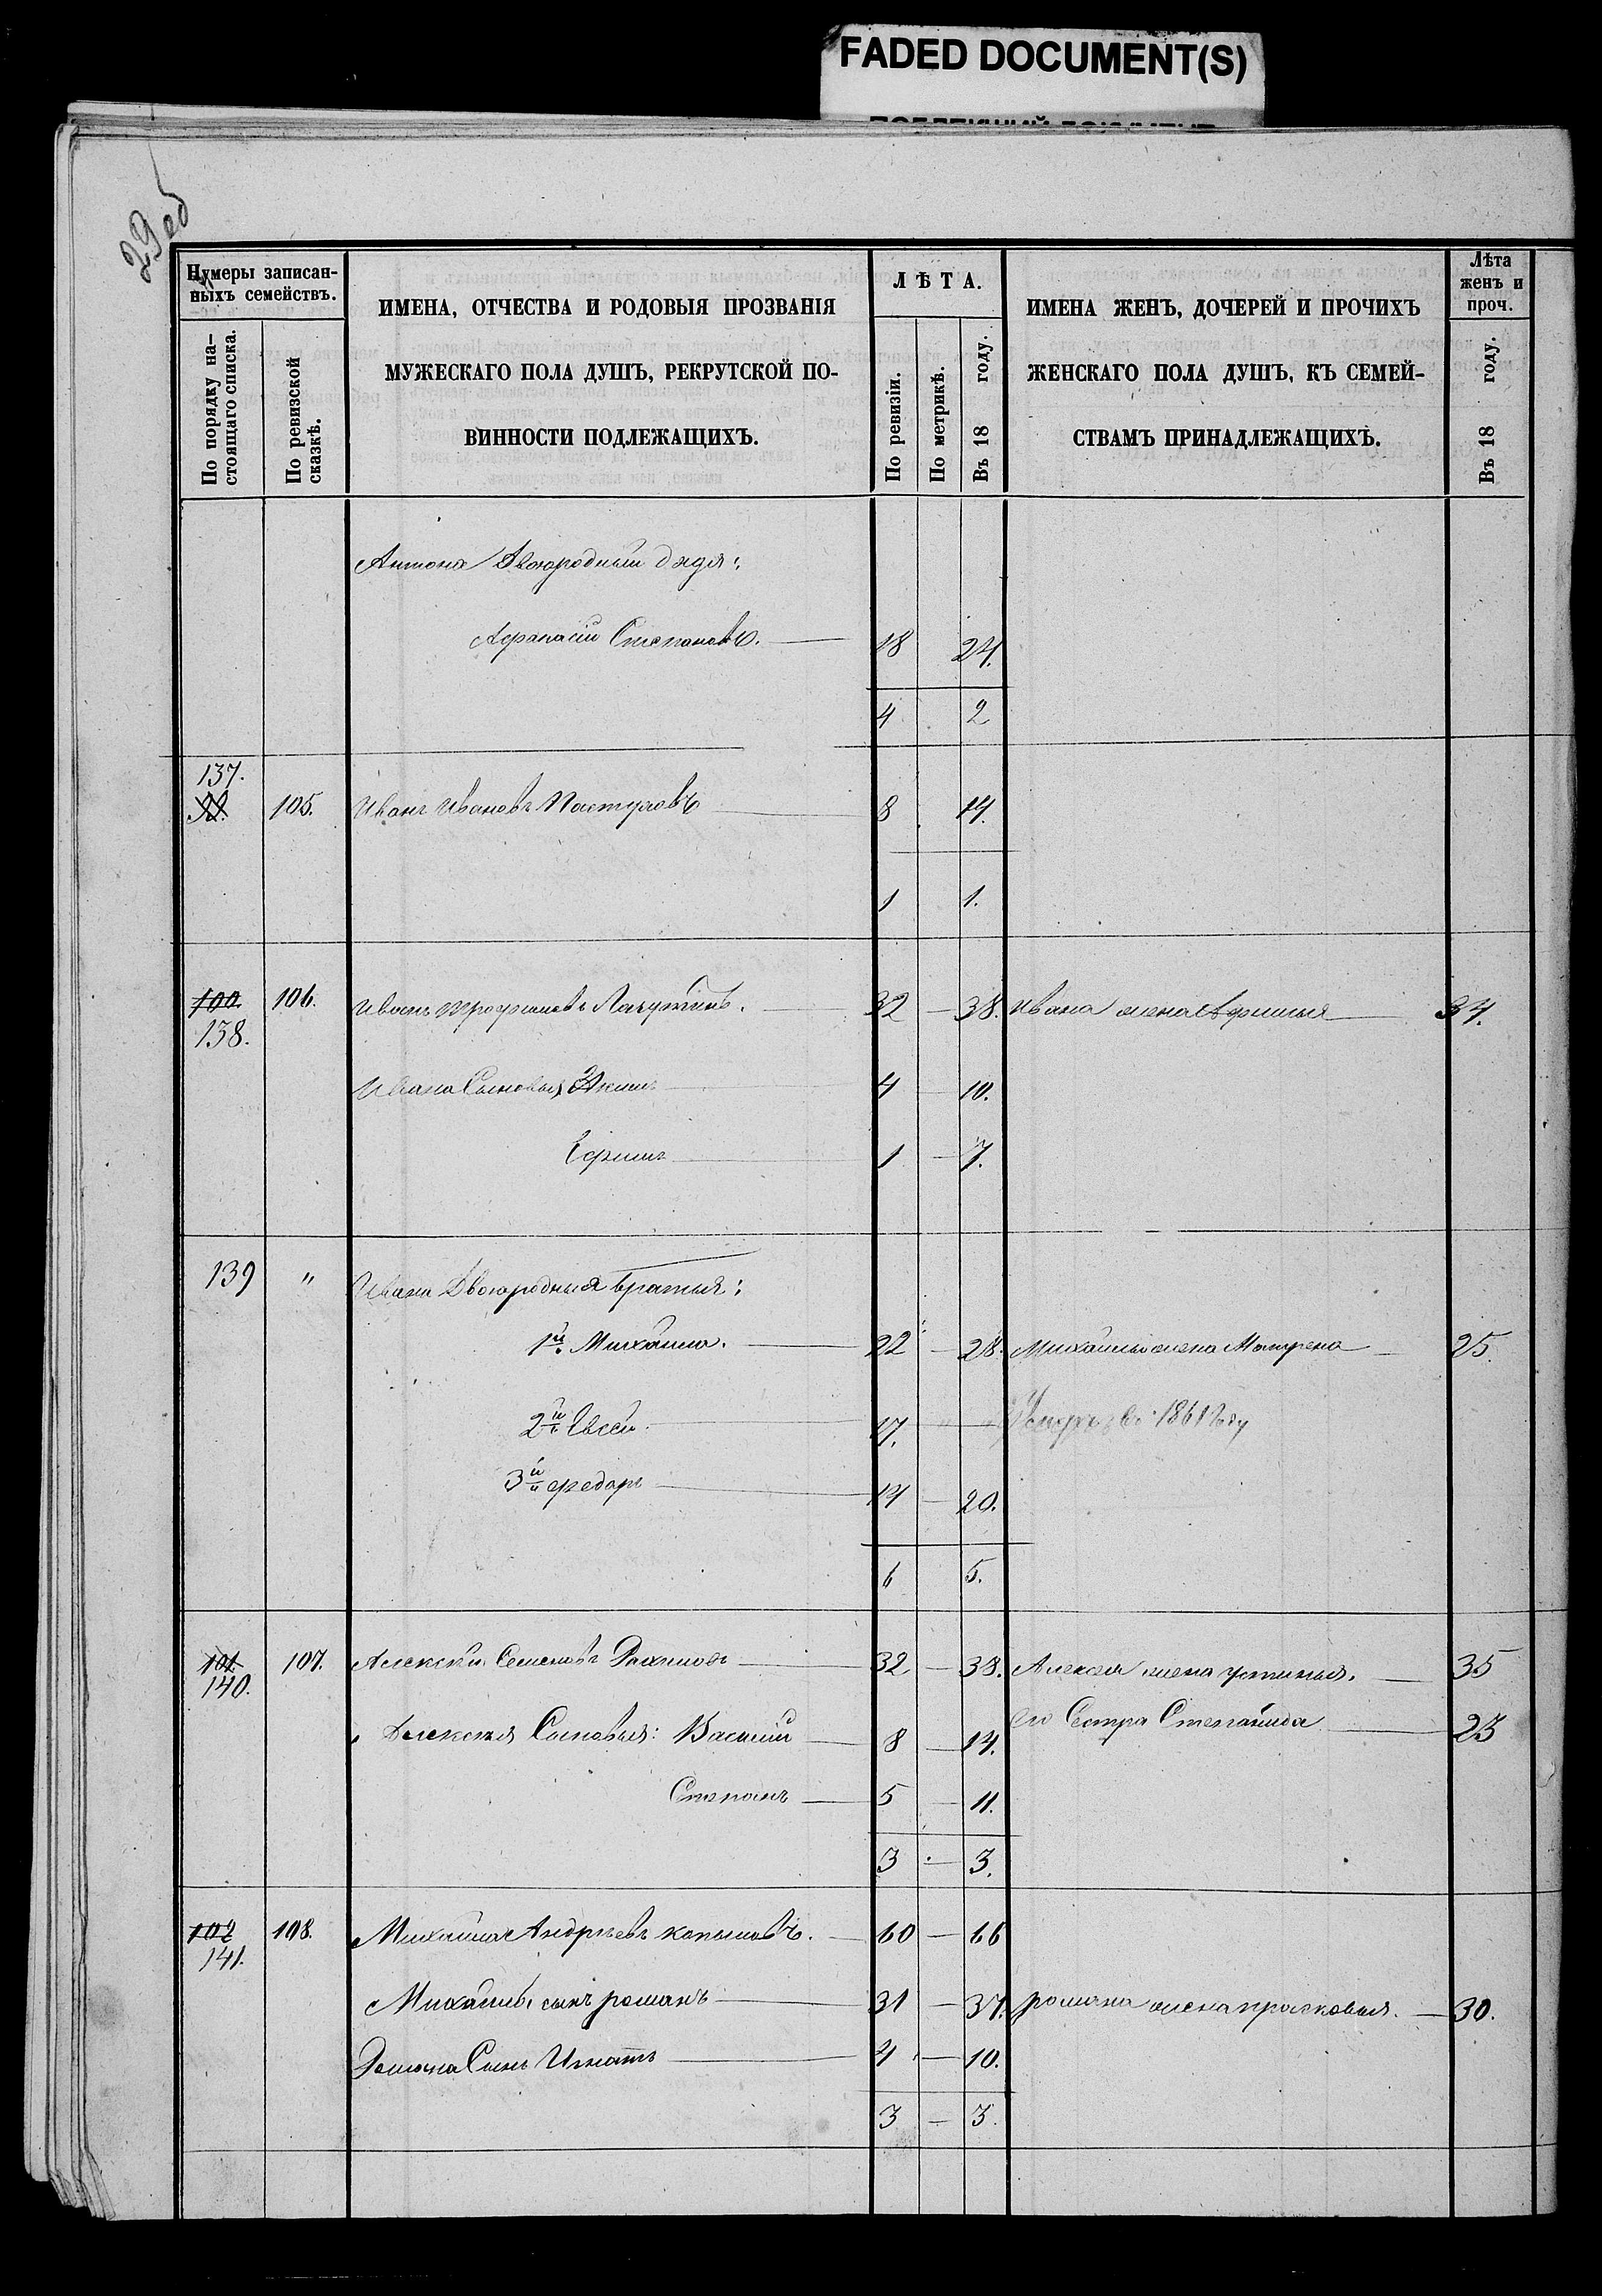 FADED DOCUMENT(S)
29 об
Нумеры записан-
ныхъ семействъ.
По порядку на-
стоящаго списка.
По ревизской
сказкѣ.
ИМЕНА, ОТЧЕСТВА И РОДОВЫЯ ПРОЗВАНІЯ
МУЖЕСКАГО ПОЛА ДУШЪ, РЕКРУТСКОЙ ПО-
ВИННОСТИ ПОДЛЕЖАЩИХЪ.
ЛѢТА.
По ревизіи.
По метрикѣ.
Въ 18 году.
ИМЕНА ЖЕНЪ, ДОЧЕРЕЙ И ПРОЧИХЪ
ЖЕНСКАГО ПОЛА ДУШЪ, КЪ СЕМЕЙ-
СТВАМЪ ПРИНАДЛЕЖАЩИХЪ.
Лѣта
женъ и
проч.
Въ 18 году.
Антона Двоюродный дядя:
Афанасій Степановъ. 18 24.
4 2
137.
105. Иванъ Ивановъ Пастуховъ 8 14.
1 1.
100 106. Иванъ Трофимовъ Лачугинъ. 32 — 38. Ивана жена Афимья 34.
138.
Ивана Сыновья Акимъ 4 — 10.
Ефимъ 1 — 7.
139 " Ивана Двоюродныя братья:
1й Михайла. 22 — 28. Михайлы жена Матрена 25.
2й Евсей. 17. — Умеръ въ 1861 году
3й федоръ 14 — 20.
6 5.
101 107. Алексѣй Семеновъ 32 — 38. Алексея жена устинья. 35
140.
его Сестра Степанида 23
Алексѣя Сыновья: Василій 8 — 14.
Степанъ 5 — 11.
3 — 3.
102 108. Михайла Андреевъ копыловъ. 60 — 66
141.
Михайлы сынъ романъ 31 — 37. романа жена прасковья. 30.
Романа Сынъ Игнатъ 4 — 10.
3 — 3.